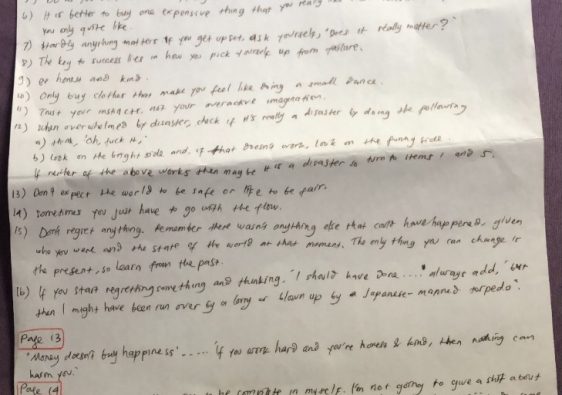 6) It is better to buy one expensive thing that you really like
you only quite like.
7) Hardly anything matters if you get upset, ask yourself, "Does it really matter?"
8) The key to success lies in how you pick yourself up from failure.
9) Be honest and kind.
10) Only buy clothes that make you feel like doing a small dance.
11) Trust your instincts, not your overactive imagination.
12) When overwhelmed by disaster, check if it's really a disaster by doing the following
a) think, 'Oh, fuck it,'
b) look on the bright side and, if that doesn't work, look on the funny side.
If neither of the above works then maybe it is a disaster so turn to items 1 and 5.
13) Don't expect the world to be safe or life to be fair.
14) Sometimes you just have to go with the flow.
15) Don't regret anything. Remember there wasn't anything else that could have happened, given
who you were and the state of the world at that moment. The only thing you can change is
the present, so learn from the past.
16) If you start regretting something and thinking, 'I should have done....' always add, 'but
then I might have been run over by a lorry or blown up by a Japanese-manned torpedo'.
Page 13
'Money doesn't buy happiness' ..... 'if you work hard and you're honest & kind, then nothing can
harm you.'
Page 14
to be complete in myself. I'm not going to give a shit about